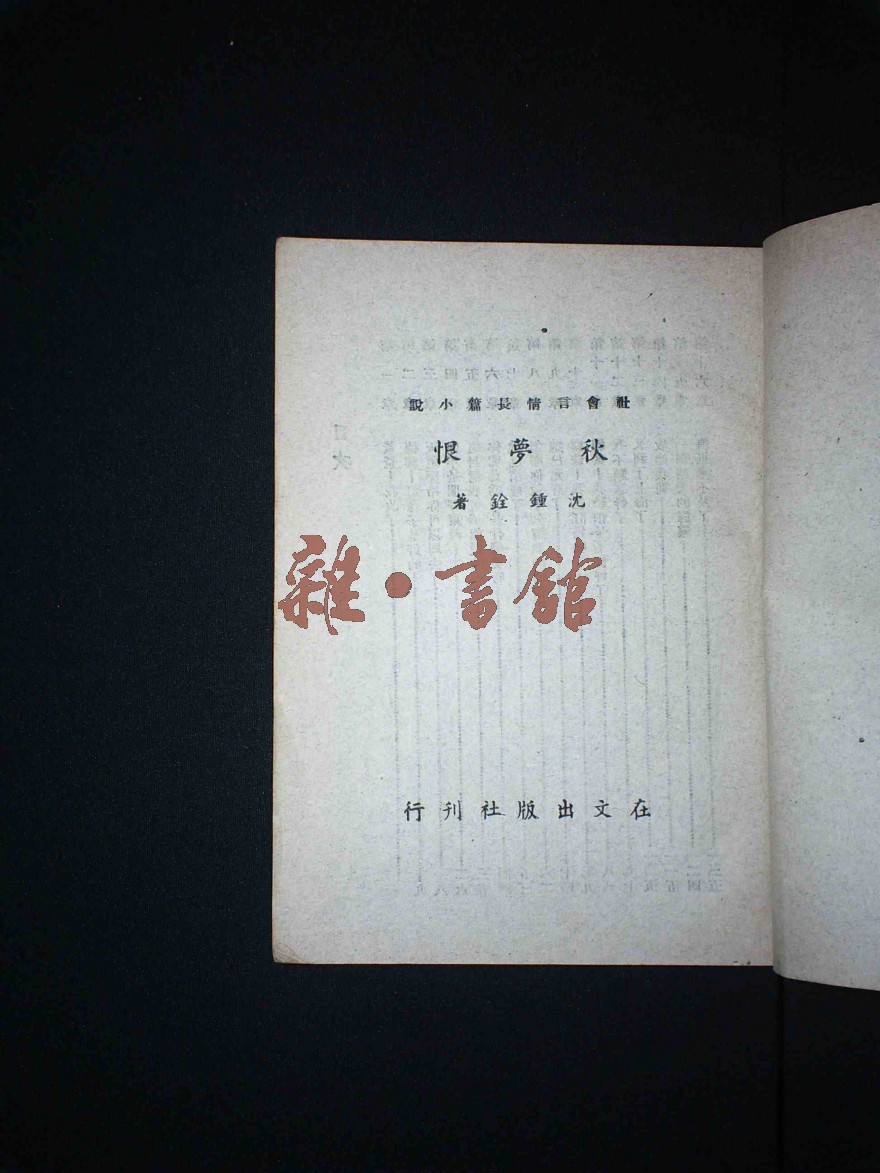 社會言情長篇小說
秋夢恨
沈鍾銓著
雜·書館
在文出版社刊行